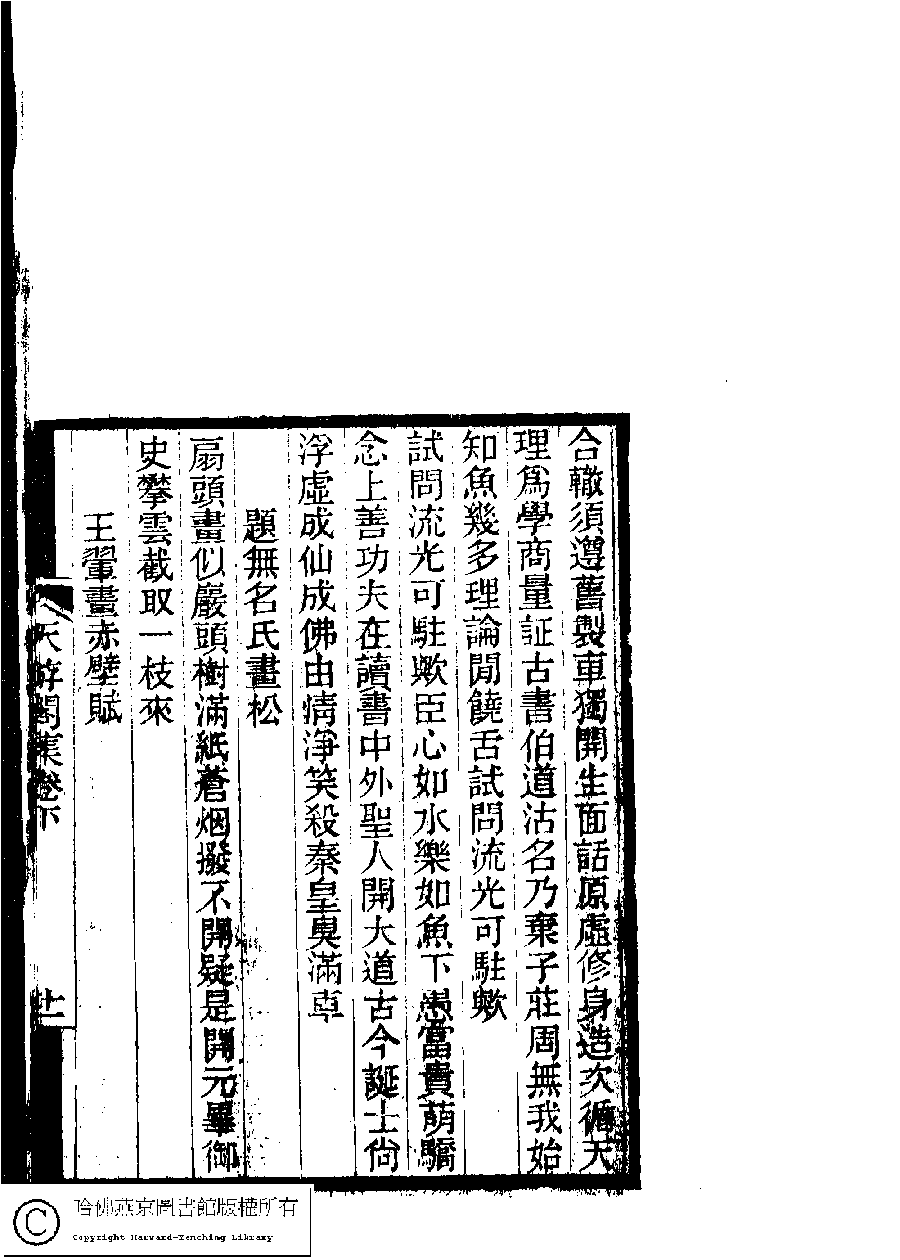 合轍須遵舊製車獨開生面話原虛修身造次循天
理爲學商量証古書伯道沽名乃棄子莊周無我始
知魚幾多理論閒饒舌試問流光可駐歟
試問流光可駐歟臣心如水樂如魚下愚富貴萌驕
念上善功夫在讀書中外聖人開大道古今誕士尙
浮虛成仙成佛由情淨笑殺秦皇臭滿車
題無名氏畫松
扇頭畫似巖頭樹滿紙蒼烟撥不開疑是開元畢御
史攀雲截取一枝來
王翬畫赤壁賦
天游閣集卷下
十一
哈佛燕京圖書館版權所有
Copyright Harvard-Yenching Library